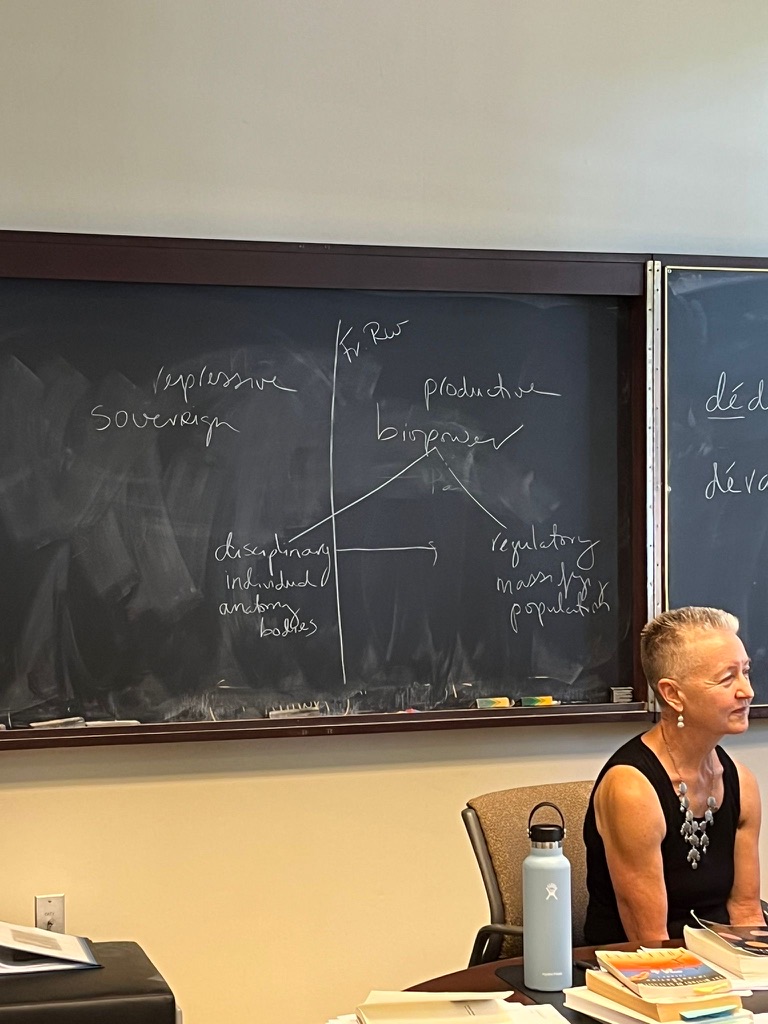 Fr. Rev
repressive
sovereign
productive
biopower
disciplinary
individual
anatomy
bodies
regulatory
massifying
population
déd
déva